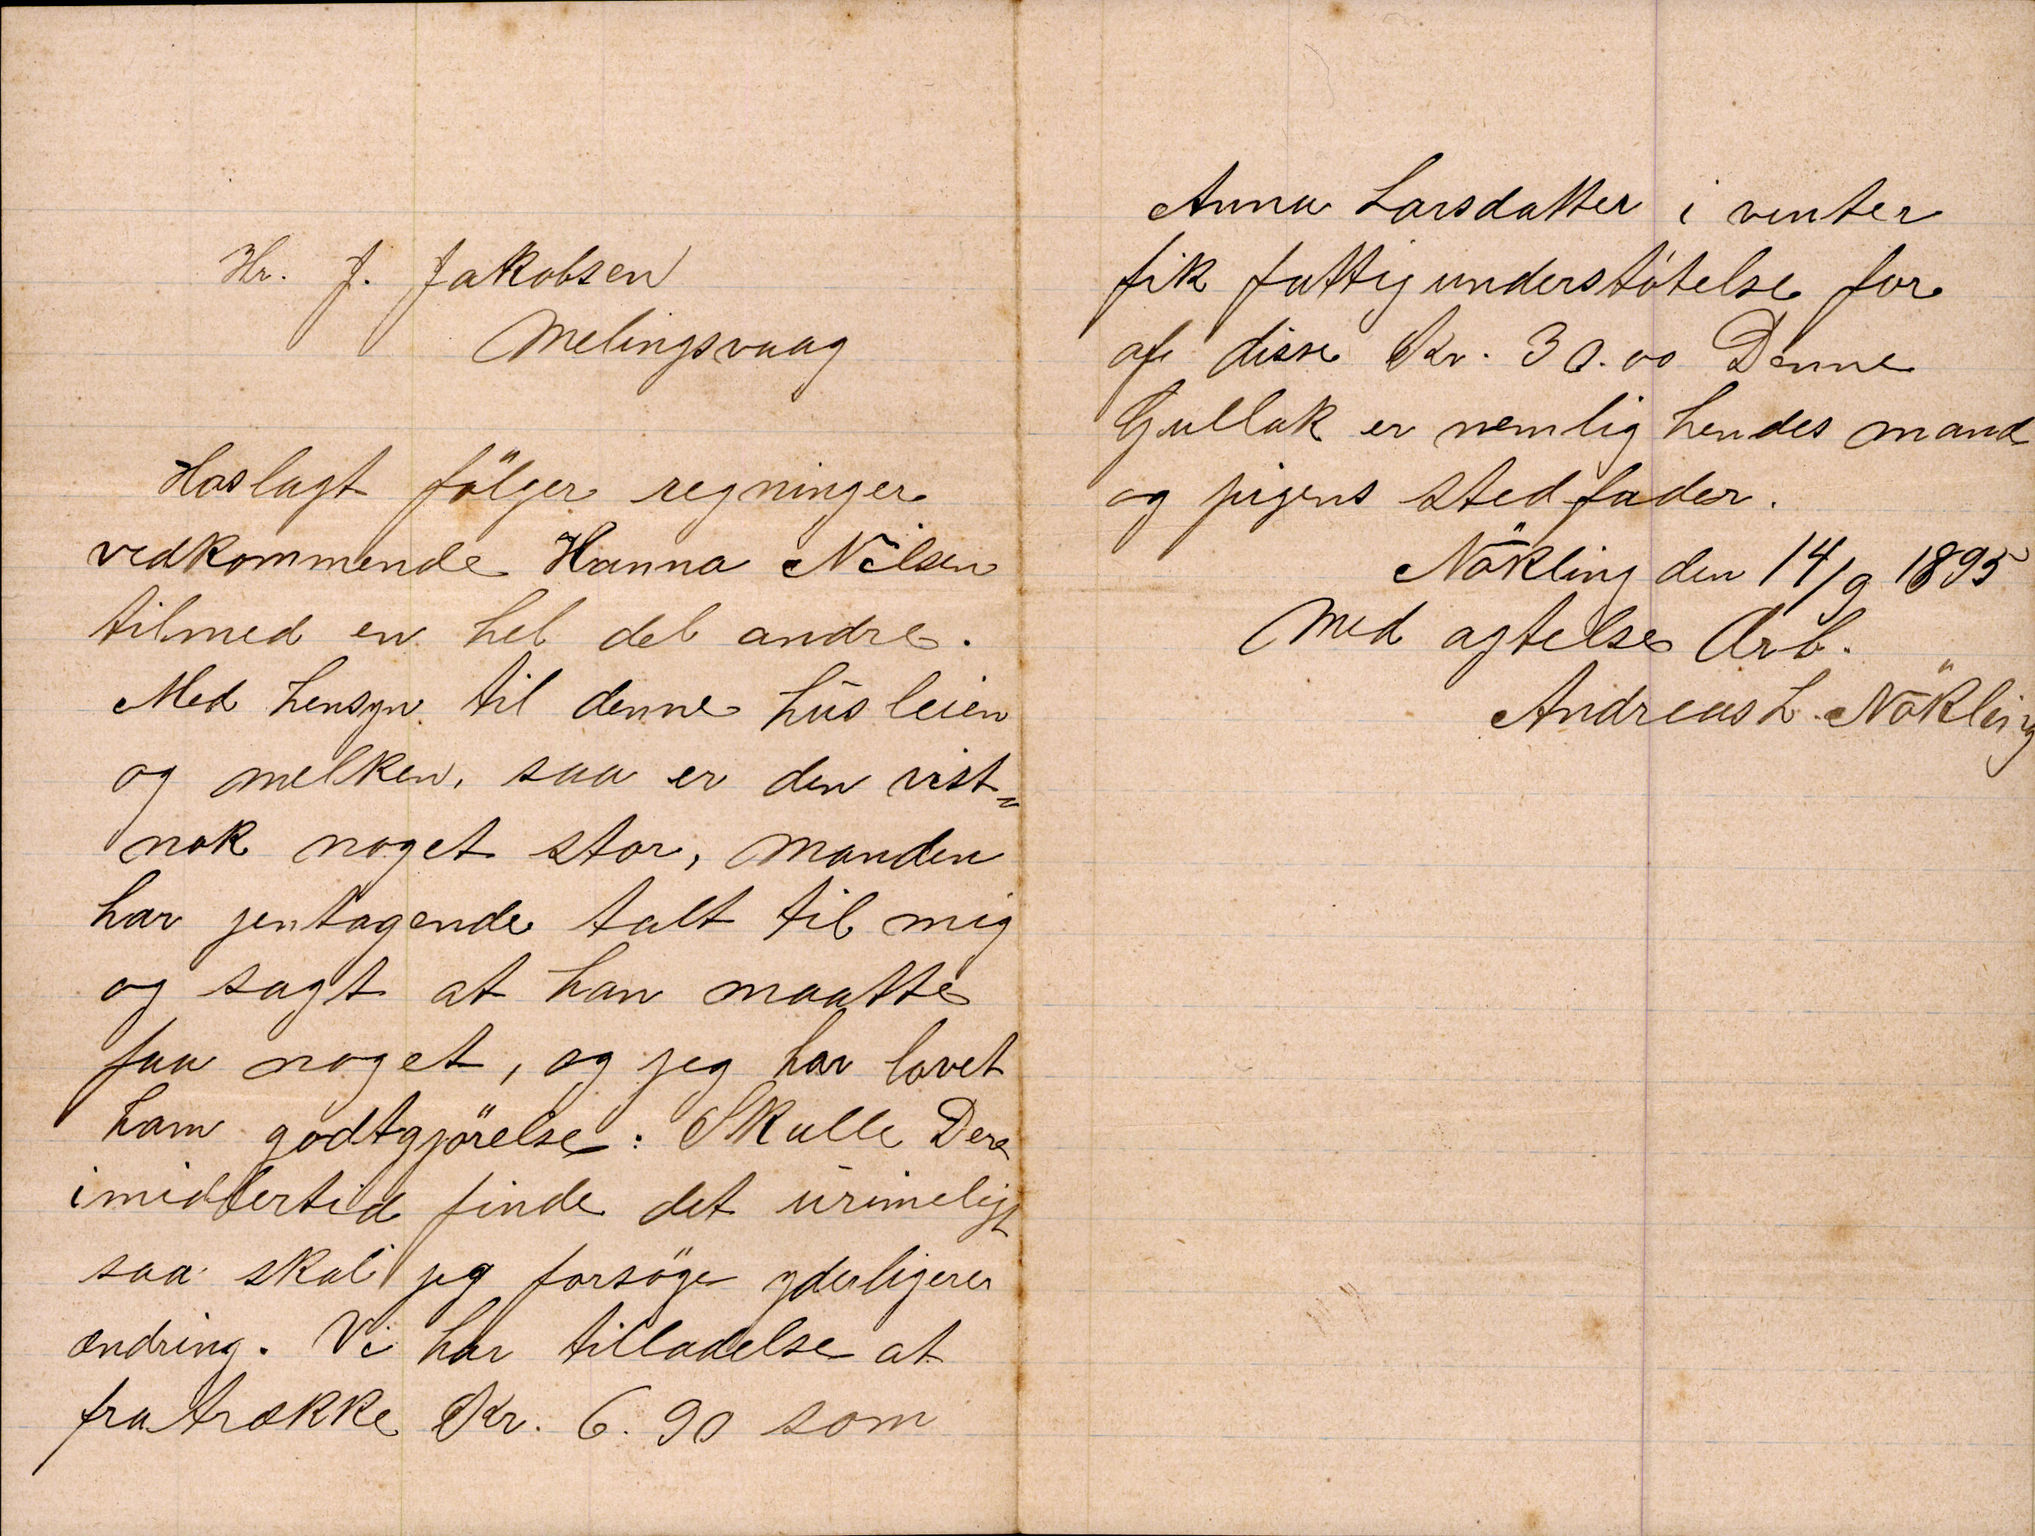 Hr. J. Jakobsen
Melingsvaag
Hoslagt fölger regninger
vedkommende Hanna Nilsen
tilmed en hel del andre.
Med hensyn til denne husleien
og melken, saa er den vist-
nok noget stor, Manden
har jentagende talt til mig
og sagt at han maatte
faa noget, og jeg har lovet
ham godtgjörelse: Skulle Dere
imidlertid finde det urimeligt
saa skal jeg forsöge yderligerer
ændring. Vi har tilladelse at
fratrække Kr. 6.90 som
Anna Larsdatter i vinter
fik fattigunderstötelse for
af disse Kr. 30.00 Denne
Gullak er nemlig hendes mand
og pigens stedfader.
Nökling den 14/9 1895
Med agtelse Arb.
Andreas L. Nökling